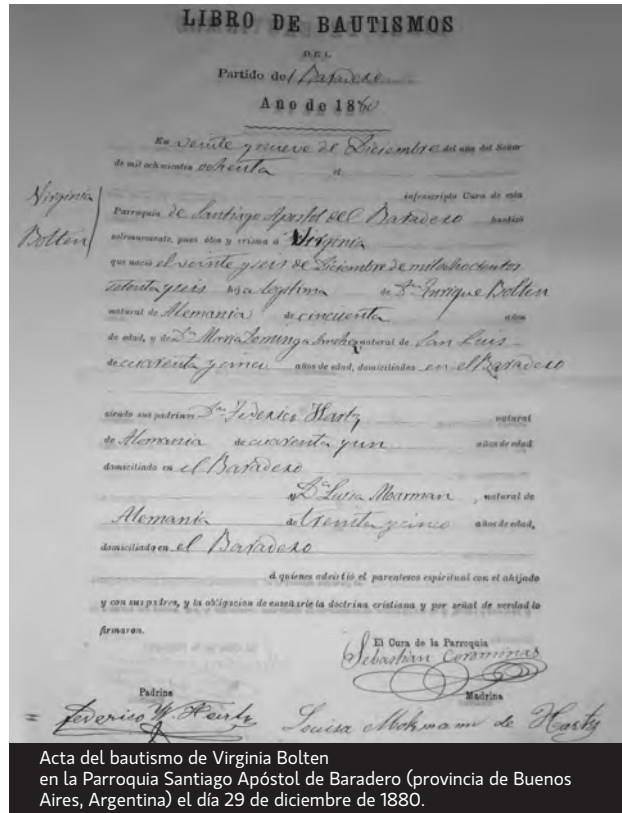 LIBRO DE BAUTISMOS
DEL
Partido del Baradero
Año de 1880
En veinte y nueve de Diciembre del año del Señor
de mil ochocientos ochenta el
infrascripto Cura de esta
Virginia
Bolten
Parroquia de Santiago Apostol del Baradero bautizó
solemnemente, puso óleo y crisma á Virginia
que nació el veinte y seis de Diciembre de mil ochocientos
setenta y seis hija legítima de Dn Enrique Bolten
natural de Alemania de cincuenta años
de edad, y de Da Maria Dominga Sanchez natural de San Luis
de cuarenta y cinco años de edad, domiciliados en el Baradero
siendo sus padrinos Dn Federico Hartz natural
de Alemania de cuarenta y un años de edad
domiciliado en el Baradero
y Da Luisa Marman, natural de
Alemania de treinta y cinco años de edad,
domiciliada en el Baradero
á quienes advirtió el parentesco espiritual con el ahijado
y con sus padres, y la obligacion de enseñarle la doctrina cristiana y por señal de verdad lo
firmaron.
El Cura de la Parroquia
Sebastian Corominas
Padrino
Madrina
Federico Hartz
Louisa Mohmann de Hartz
Acta del bautismo de Virginia Bolten
en la Parroquia Santiago Apóstol de Baradero (provincia de Buenos
Aires, Argentina) el día 29 de diciembre de 1880.